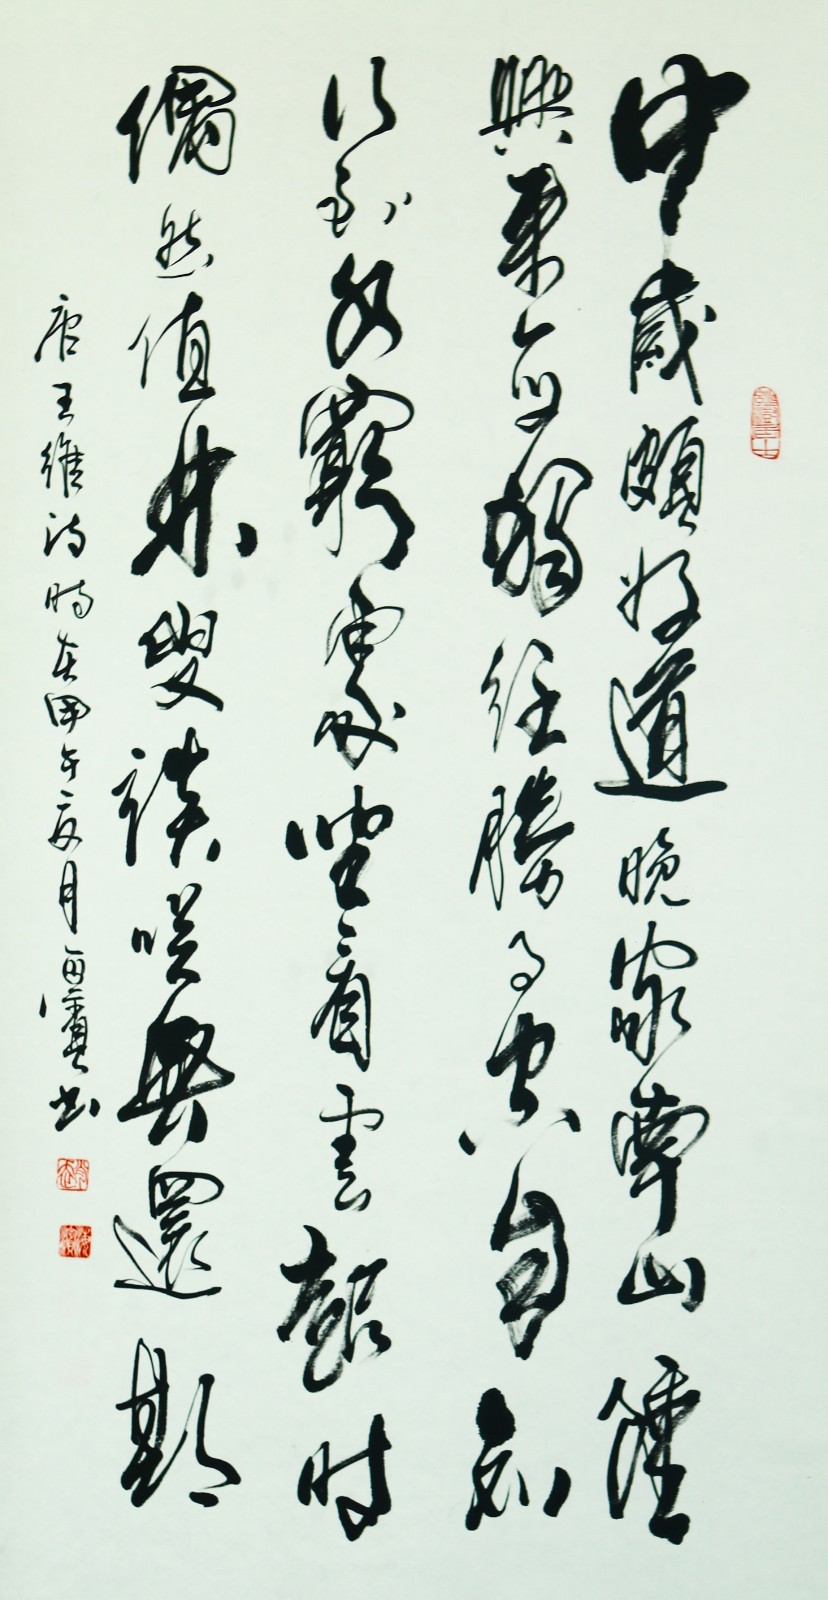 中歲頗好道晚家南山陲
興來每獨往勝事空自知
行到水窮處坐看雲起时
偶然值林叟談咲無還期
唐王維詩時在甲午夏月海濱書